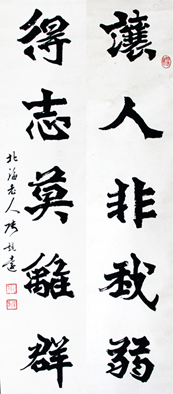 讓人非我弱
得志莫離群
北海老人張